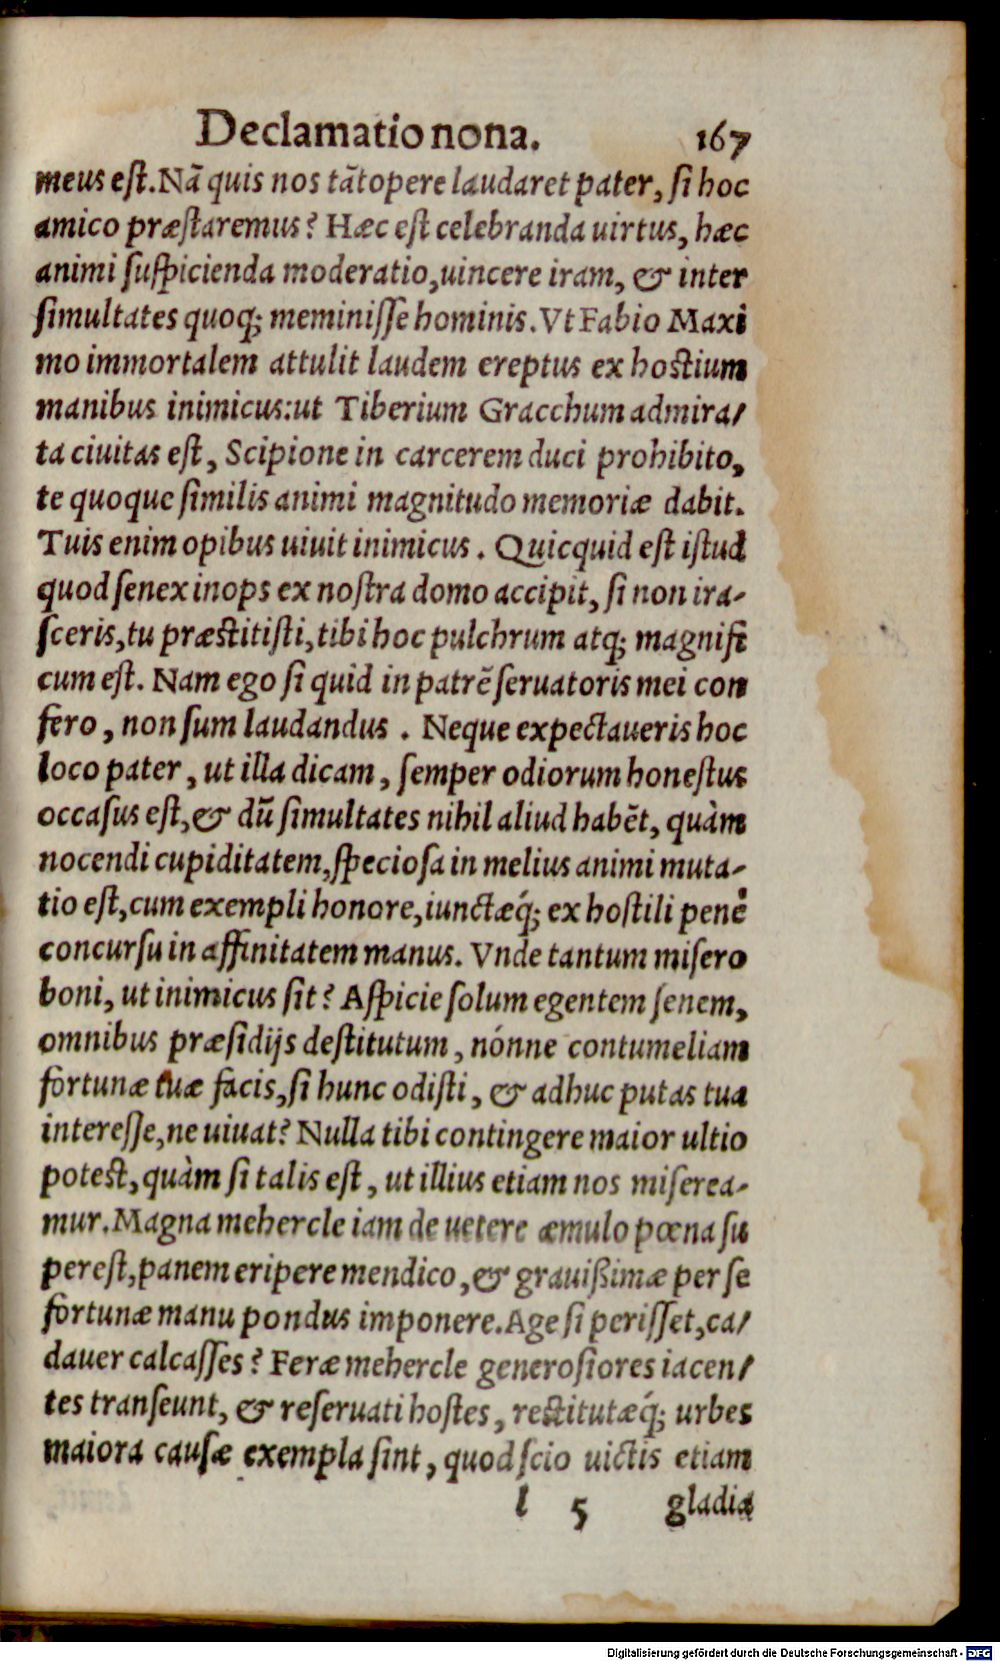 Declamatio nona. 167
meus est. Nā quis nos tātopere laudaret pater, si hoc
amico præstaremus? Hæc est celebranda uirtus, hæc
animi suspicienda moderatio, uincere iram, & inter
simultates quoq; meminisse hominis. Vt Fabio Maxi
mo immortalem attulit laudem ereptus ex hostium
manibus inimicus: ut Tiberium Gracchum admira/
ta ciuitas est, Scipione in carcerem duci prohibito,
te quoque similis animi magnitudo memoriæ dabit.
Tuis enim opibus uiuit inimicus. Quicquid est istud
quod senex inops ex nostra domo accipit, si non ira-
sceris, tu præstitisti, tibi hoc pulchrum atq; magnifi
cum est. Nam ego si quid in patrē seruatoris mei con
fero, non sum laudandus. Neque expectaueris hoc
loco pater, ut illa dicam, semper odiorum honestus
occasus est, & dū simultates nihil aliud habēt, quàm
nocendi cupiditatem, speciosa in melius animi muta-
tio est, cum exempli honore, iunctæq́; ex hostili penè
concursu in affinitatem manus. Vnde tantum misero
boni, ut inimicus sit? Aspicie solum egentem senem,
omnibus præsidijs destitutum, nónne contumeliam
fortunæ tuæ facis, si hunc odisti, & adhuc putas tua
interesse, ne uiuat? Nulla tibi contingere maior ultio
potest, quàm si talis est, ut illius etiam nos miserea-
mur. Magna mehercle iam de uetere æmulo pœna su
perest, panem eripere mendico, & grauißimæ per se
fortunæ manu pondus imponere. Age si perisset, ca/
dauer calcasses? Feræ mehercle generosiores iacen/
tes transeunt, & reseruati hostes, restitutæq́; urbes
maiora causæ exempla sint, quod scio uictis etiam
l 5 gladia
Digitalisierung gefördert durch die Deutsche Forschungsgemeinschaft - DFG